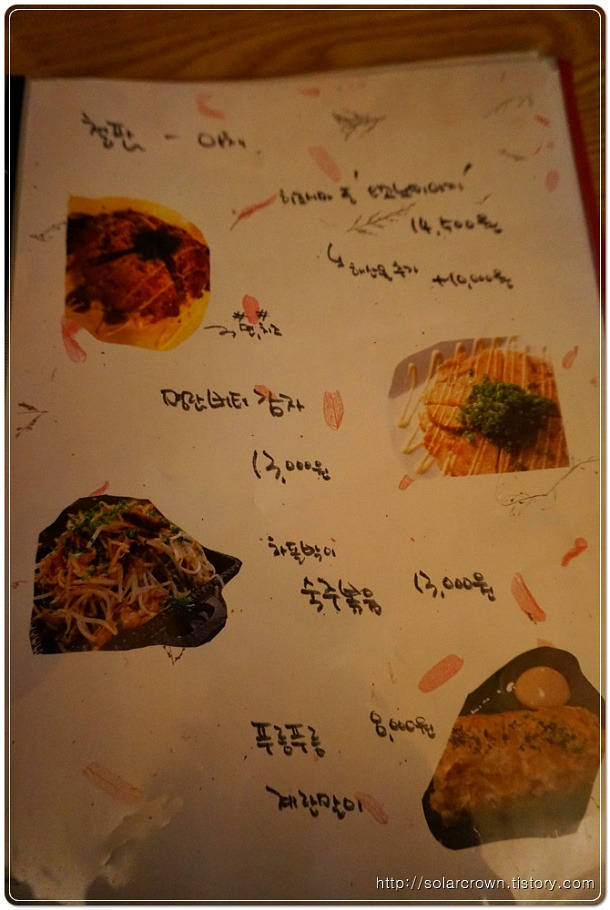 철판 - 야채
히로시마 풍 '오코노미야끼'
14,500원
↳ 해산물 추가 +10,000원
면, 치즈
명란버터 감자
13,000원
차돌박이
숙주볶음 13,000원
푸릉푸릉 8,000원
계란말이
http://solarcrown.tistory.com/